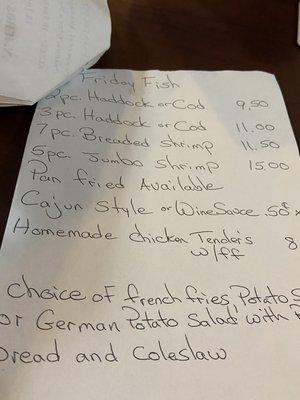 Friday Fish
2pc. Haddock or Cod 9.50
3pc. Haddock or Cod 11.00
7pc. Breaded Shrimp 11.50
5pc. Jumbo Shrimp 15.00
Pan fried Available
Cajun Style or Wine Sauce .50¢
Homemade Chicken Tenders 8
w/ff
Choice of french fries, Potato S
or German Potato Salad with
Bread and Coleslaw